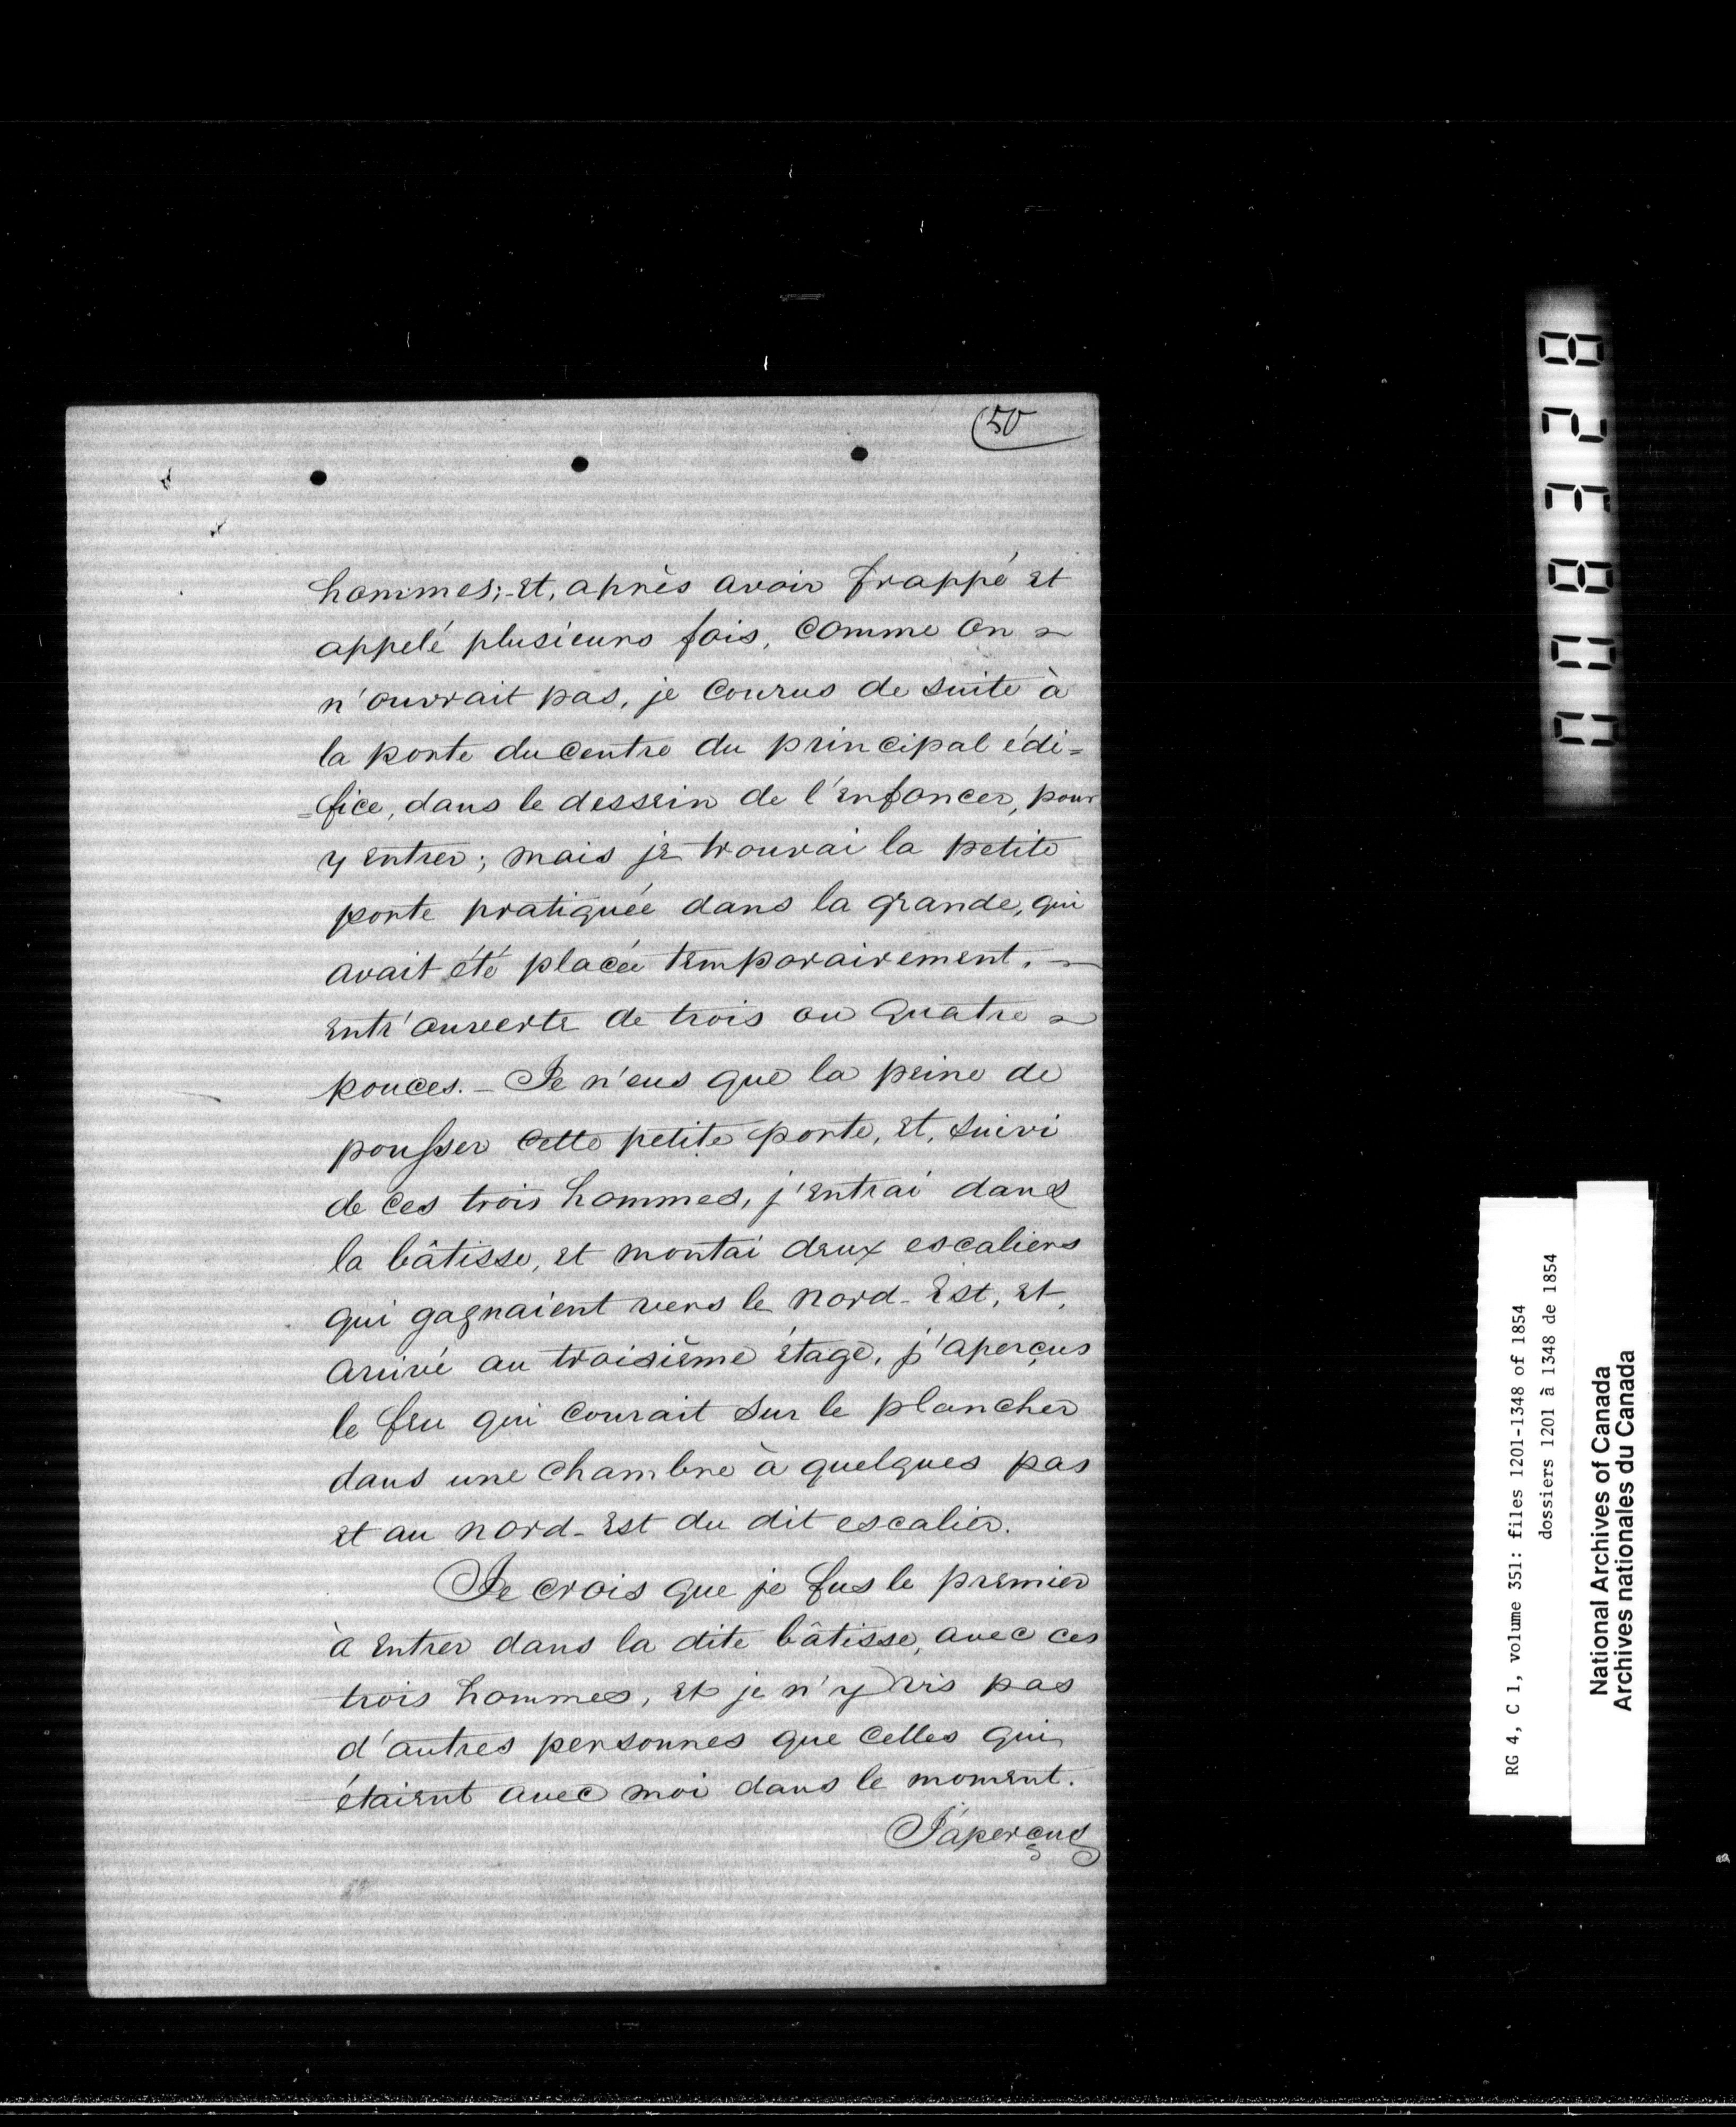 50
hommes;-et, après avoir frappé et
appelé plusieurs fois, comme on
n'ouvrait pas, je courus de suite à
la porte du centre du principal édi=
=fice, dans le dessein de l'enfoncer, pour
y entrer; mais je trouvai la petite
porte pratiquée dans la grande, qui
avait été placée temporairement,
entr'ouverte de trois ou quatre
pouces.- Je n'eus que la peine de
pousser cette petite porte, et, suivi
de ces trois hommes, j'entrai dans
la bâtisse, et montai deux escaliers
qui gagnaient vers le nord-Est, et,
arrivé au troisième étage, j'aperçus
le feu qui courait sur le plancher
dans une chambre à quelques pas
et au nord-Est du dit escalier.
Je crois que je fus le premier
à entrer dans la dite bâtisse, avec ces
trois hommes, et je n'y vis pas
d'autres personnes que celles qui
étaient avec moi dans le moment.
J'aperçus
003828
RG 4, C 1, volume 351: files 1201-1348 of 1854
dossiers 1201 à 1348 de 1854
National Archives of Canada
Archives nationales du Canada